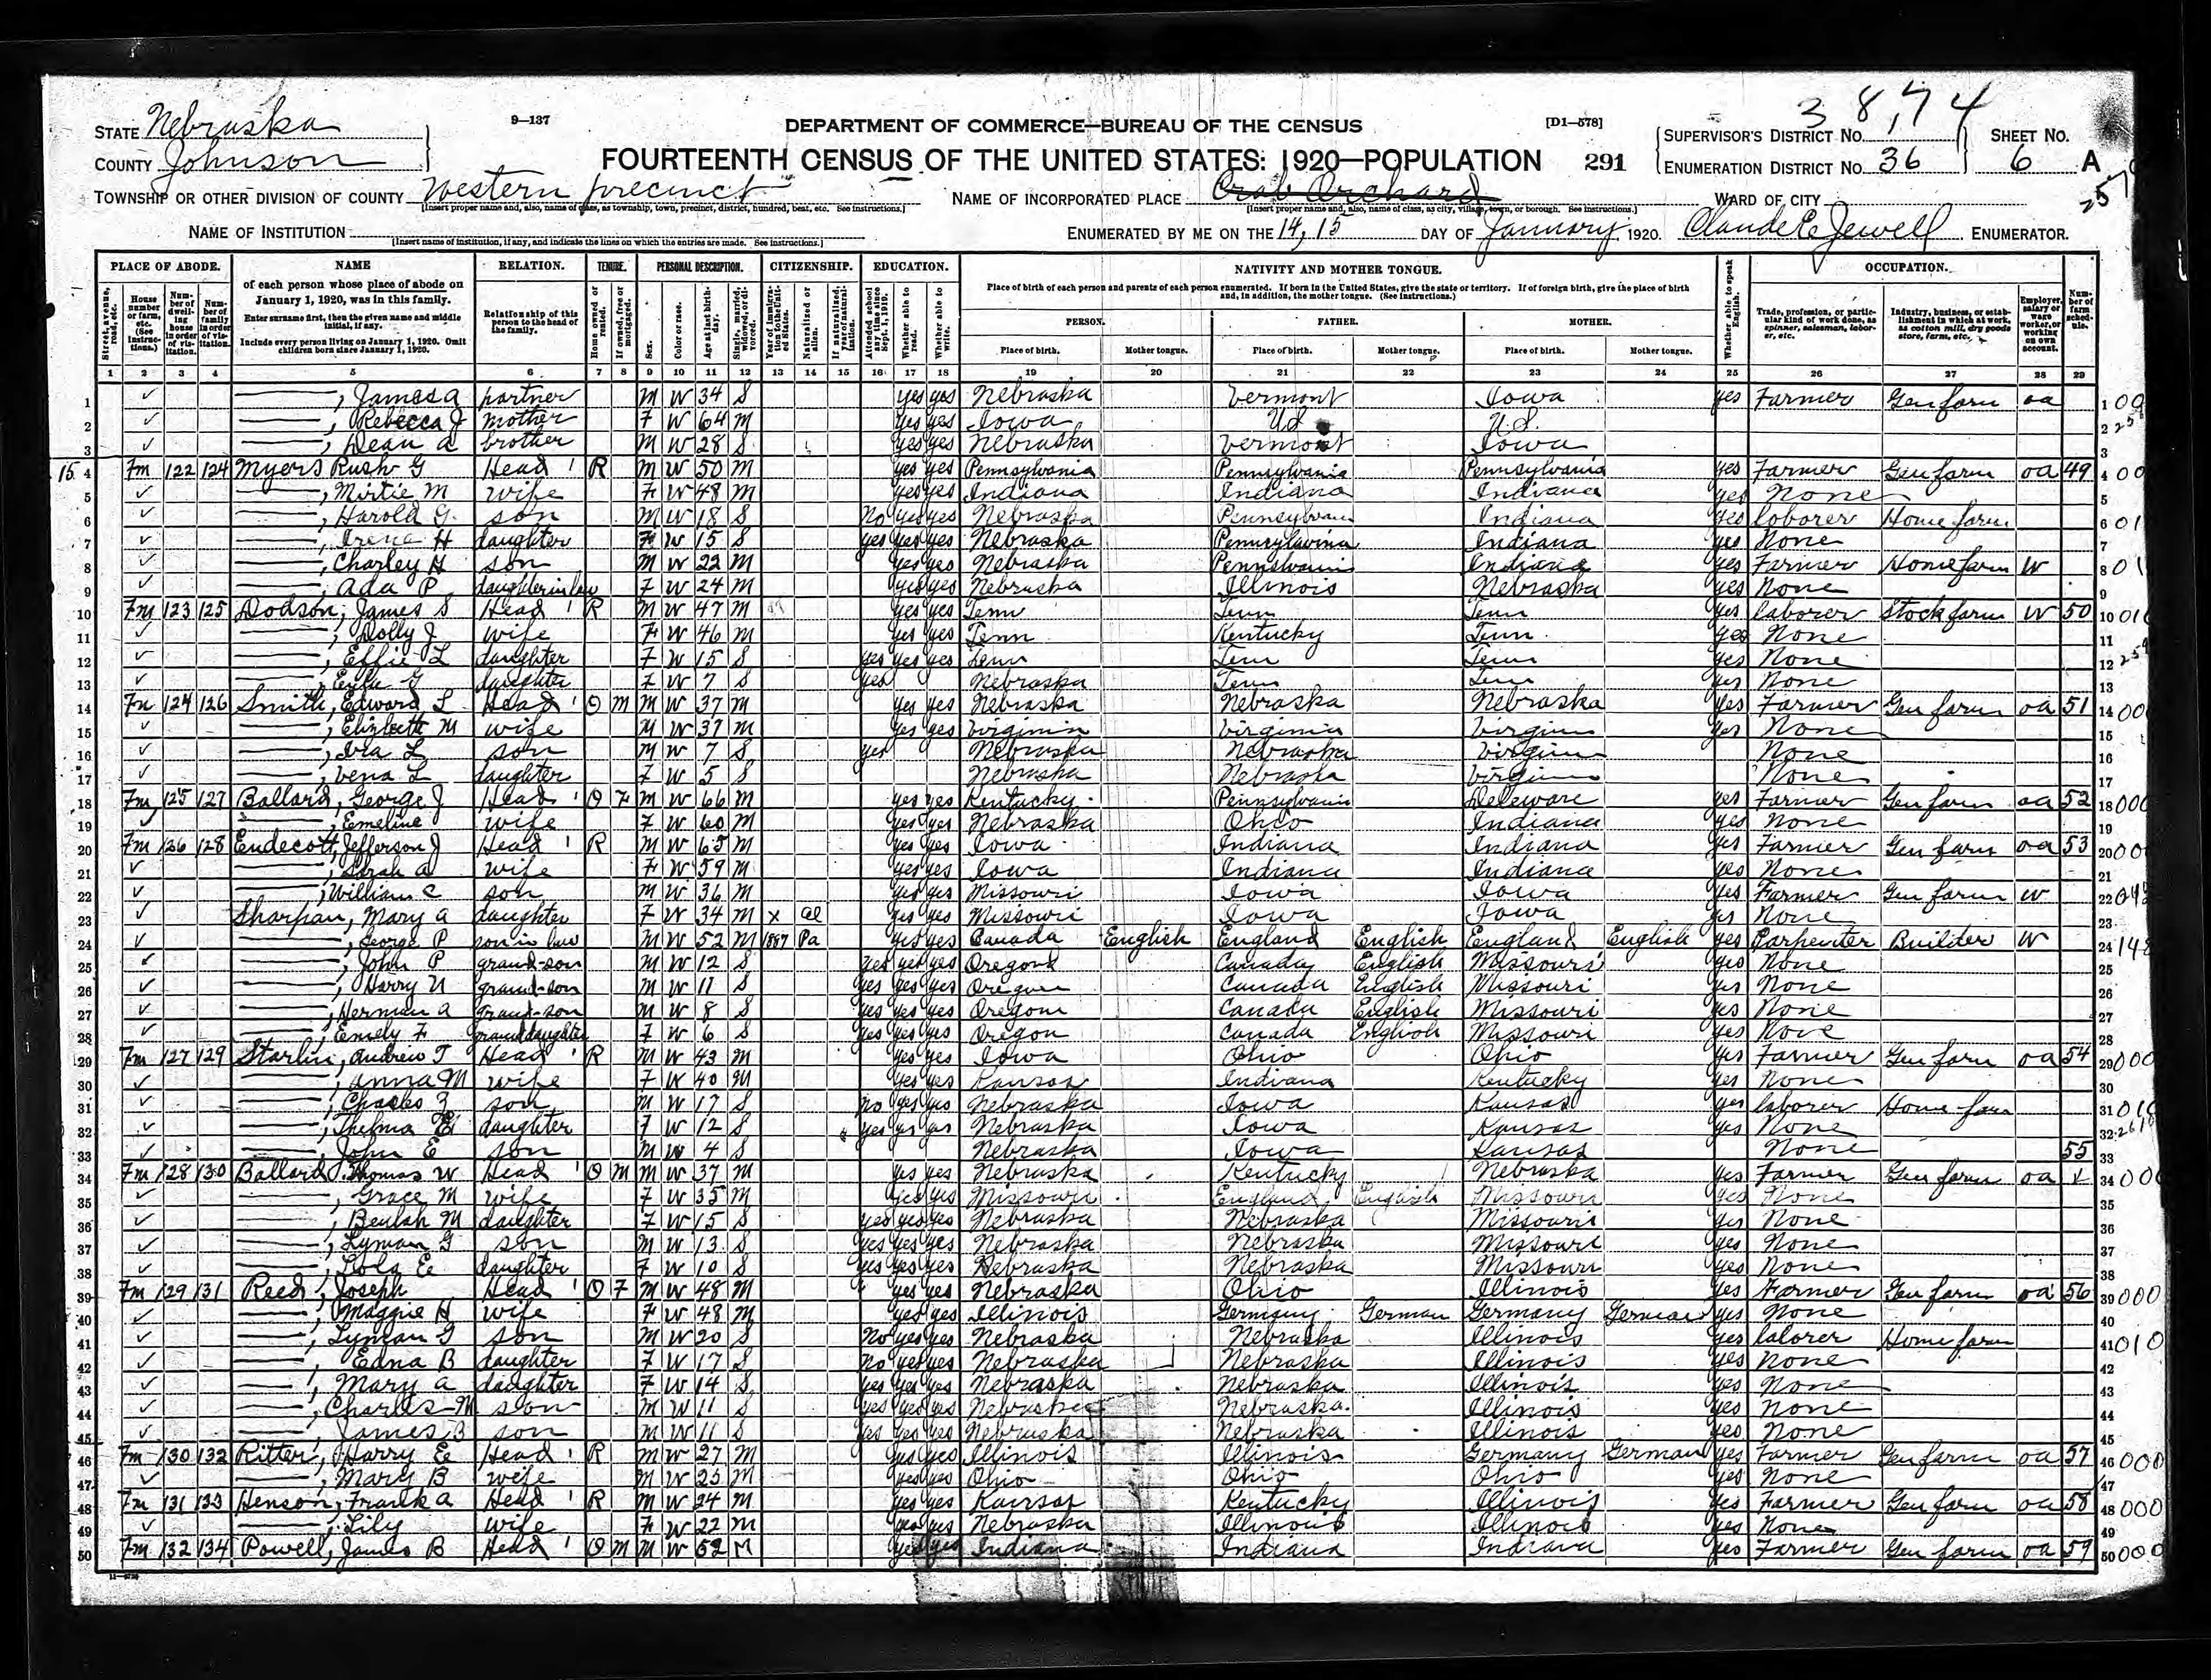 STATE Nebraska
COUNTY Johnson
9—137
DEPARTMENT OF COMMERCE—BUREAU OF THE CENSUS
[D1—578]
38,74
FOURTEENTH CENSUS OF THE UNITED STATES: 1920—POPULATION 291
SUPERVISOR'S DISTRICT No.
ENUMERATION DISTRICT No. 36
SHEET No. 6 A
TOWNSHIP OR OTHER DIVISION OF COUNTY Western precinct
[Insert proper name and, also, name of class, as township, town, precinct, district, hundred, beat, etc. See instructions.]
NAME OF INCORPORATED PLACE Crab Orchard
[Insert proper name and, also, name of class, as city, village, town, or borough. See instructions.]
WARD OF CITY
NAME OF INSTITUTION
[Insert name of institution, if any, and indicate the lines on which the entries are made. See instructions.]
ENUMERATED BY ME ON THE 14, 15 DAY OF January, 1920. Claude E Jewell ENUMERATOR.
PLACE OF ABODE. NAME RELATION. TENURE. PERSONAL DESCRIPTION. CITIZENSHIP. EDUCATION. NATIVITY AND MOTHER TONGUE. OCCUPATION.
of each person whose place of abode on January 1, 1920, was in this family.
Enter surname first, then the given name and middle initial, if any.
Include every person living on January 1, 1920. Omit children born since January 1, 1920.
Relationship of this person to the head of the family.
Place of birth of each person and parents of each person enumerated. If born in the United States, give the state or territory. If of foreign birth, give the place of birth and, in addition, the mother tongue. (See instructions.)
PERSON. FATHER. MOTHER.
Place of birth. Mother tongue. Place of birth. Mother tongue. Place of birth. Mother tongue.
1 2 3 4 5 6 7 8 9 10 11 12 13 14 15 16 17 18 19 20 21 22 23 24 25 26 27 28 29
1 ——, James A partner M W 34 S yes yes Nebraska Vermont Iowa yes Farmer Gen farm oa
2 ——, Rebecca J mother F W 64 M yes yes Iowa US U.S.
3 ——, Dean A brother M W 28 S yes yes Nebraska Vermont Iowa
15 4 Fm 122 124 Myers Rush G Head R M W 50 M yes yes Pennsylvania Pennsylvania Pennsylvania yes Farmer Gen farm oa 49
5 ——, Mirtie M wife F W 48 M yes yes Indiana Indiana Indiana yes None
6 ——, Harold G. son M W 18 S No yes yes Nebraska Indiana yes laborer Home farm
7 ——, Irena H daughter F W 15 S yes yes yes Nebraska Indiana yes None
8 ——, Charley H son M W 22 M yes yes Nebraska Indiana yes Farmer Home farm W
9 ——, Ada P daughter in law F W 24 M yes yes Nebraska Illinois Nebraska yes None
10 Fm 123 125 Dodson, James S Head R M W 47 M yes yes Tenn Tenn Tenn yes laborer Stock farm W 50
11 ——, Dolly J wife F W 46 M yes yes Tenn Kentucky Tenn. yes None
12 ——, Effie L daughter F W 15 S yes yes yes Tenn Tenn Tenn yes None
13 ——, G daughter F W 7 S yes Nebraska Tenn Tenn yes None
14 Fm 124 126 Smith, Edward L Head O M M W 37 M yes yes Nebraska Nebraska Nebraska yes Farmer Gen farm oa 51
15 ——, Elizbeth M wife M W 37 M yes yes Virginia Virginia Virginia yes None
16 ——, Ira L son M W 7 S yes Nebraska Nebraska Virginia None
17 ——, Vena L daughter F W 5 S Nebraska Nebraska Virginia None
18 Fm 125 127 Ballard, George J Head O F M W 66 M yes yes Kentucky Pennsylvania Deleware yes Farmer Gen farm oa 52
19 ——, Emeline wife F W 60 M yes yes Nebraska Ohio Indiana yes None
20 Fm 126 128 Endecott, Jefferson J Head R M W 65 M yes yes Iowa Indiana Indiana yes Farmer Gen farm oa 53
21 ——, Sarah A wife F W 59 M yes yes Iowa Indiana Indiana yes None
22 ——, William C son M W 36 M yes yes Missouri Iowa Iowa yes Farmer Gen farm W
23 Sharpan, Mary A daughter F W 34 M x al yes yes Missouri Iowa Iowa yes None
24 ——, George P son in law M W 52 M 1887 Pa yes yes Canada English England English England English yes Carpenter Builder W
25 ——, John P grand-son M W 12 S yes yes yes Oregon Canada English Missouri yes None
26 ——, Harry N grand-son M W 11 S yes yes yes Oregon Canada English Missouri yes None
27 ——, Herman A grand-son M W 8 S yes yes yes Oregon Canada English Missouri yes None
28 ——, Emely F granddaughter F W 6 S yes yes yes Oregon Canada English Missouri yes None
29 Fm 127 129 Starlin, Andrew T Head R M W 43 M yes yes Iowa Ohio Ohio yes Farmer Gen farm oa 54
30 ——, Anna M wife F W 40 M yes yes Kansas Indiana Kentucky yes None
31 ——, Charles Z son M W 17 S no yes yes Nebraska Iowa Kansas yes laborer Home farm
32 ——, Thelma E daughter F W 12 S yes yes yes Nebraska Iowa Kansas yes None
33 ——, John E son M W 4 S Nebraska Iowa Kansas None 55
34 Fm 128 130 Ballard, Thomas W Head O M M W 37 M yes yes Nebraska Kentucky Nebraska yes Farmer Gen farm oa
35 ——, Grace M wife F W 35 M yes yes Missouri England English Missouri yes None
36 ——, Beulah M daughter F W 15 S yes yes yes Nebraska Nebraska Missouri yes None
37 ——, Lyman G son M W 13 S yes yes yes Nebraska Nebraska Missouri yes None
38 ——, Lola E daughter F W 10 S yes yes yes Nebraska Nebraska Missouri yes None
39 Fm 129 131 Reed, Joseph Head O F M W 48 M yes yes Nebraska Ohio Illinois yes Farmer Gen farm oa 56
40 ——, Maggie H wife F W 48 M yes yes Illinois Germany German Germany German yes None
41 ——, Lyman G son M W 20 S No yes yes Nebraska Nebraska Illinois yes laborer Home farm
42 ——, Edna B daughter F W 17 S No yes yes Nebraska Nebraska Illinois yes None
43 ——, Mary A daughter F W 14 S yes yes yes Nebraska Nebraska Illinois yes None
44 ——, Charles M son M W 11 S yes yes yes Nebraska Nebraska Illinois yes None
45 ——, James B son M W 11 S yes yes yes Nebraska Nebraska Illinois yes None
46 Fm 130 132 Ritter, Harry E Head R M W 27 M yes yes Illinois Illinois Germany German yes Farmer Gen farm oa 57
47 ——, Mary B wife M W 25 M yes yes Ohio Ohio Ohio yes None
48 Fm 131 133 Henson, Frank A Head R M W 24 M yes yes Kansas Kentucky Illinois yes Farmer Gen farm oa 58
49 ——, Lily wife F W 22 M yes yes Nebraska Illinois Illinois yes None
50 Fm 132 134 Powell, James B Head O M M W 52 M yes yes Indiana Indiana Indiana yes Farmer Gen farm oa 59